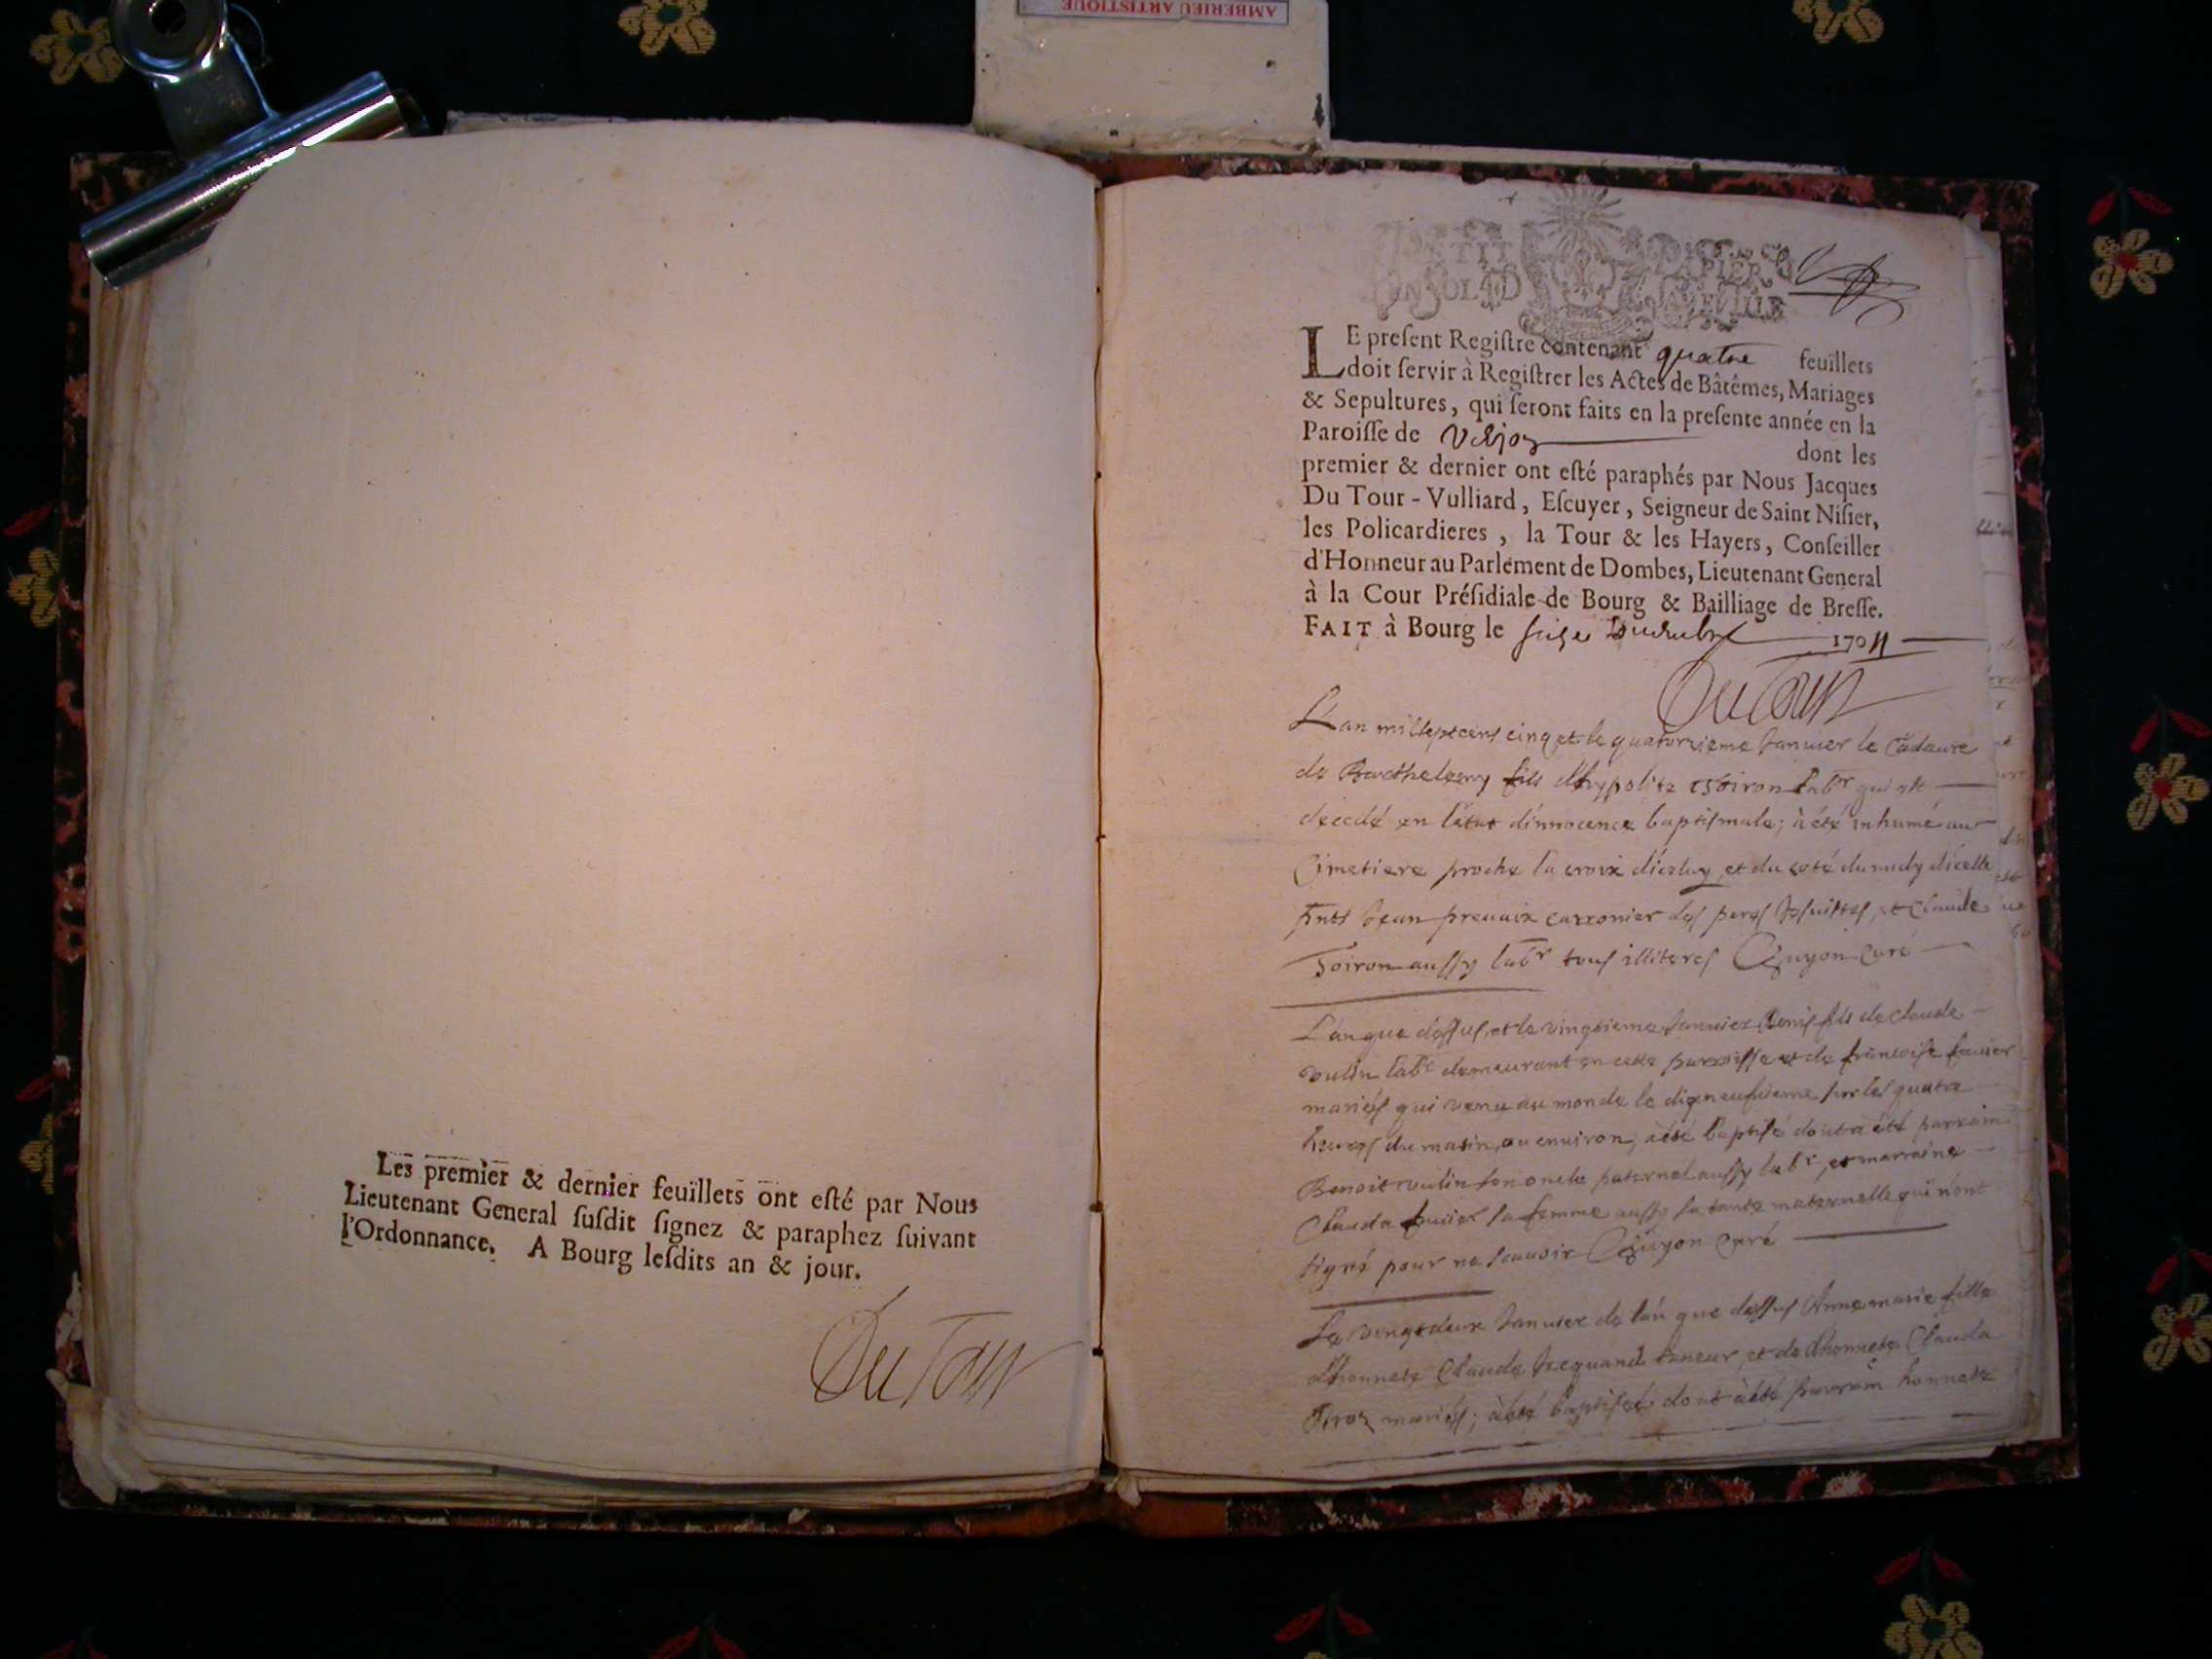 AMBERIEU ARTISTIQUE
Les premier & dernier feuïllets ont eſté par Nous
Lieutenant General ſuſdit ſignez & paraphez ſuivant
l'Ordonnance. A Bourg leſdits an & jour.
Du Tour
PETIT PAPIER
LE preſent Regiſtre contenant quatre feuïllets
doit ſervir à Regiſtrer les Actes de Bâtêmes, Mariages
& Sepultures, qui ſeront faits en la preſente année en la
Paroiſſe de dont les
premier & dernier ont eſté paraphés par Nous Jacques
Du Tour - Vulliard, Eſcuyer, Seigneur de Saint Niſier,
les Policardieres, la Tour & les Hayers, Conſeiller
d'Honneur au Parlement de Dombes, Lieutenant General
à la Cour Préſidiale de Bourg & Bailliage de Breſſe.
FAIT à Bourg le 170
DuTour
L'an mil sept cens cinq et le quatorzieme Janvier le Cadavre
de Barthelemy fils d'hypolite Soiron labr qui est
decedé en l'état d'innocence baptismale; a été inhumé au
Cimetiere proche la croix d'iceluy et du coté du midy d'icelle
pnts Jean carronier des peres Jesuites, et Claude
Soiron aussy labr tous illiteres Guyon Curé
L'an que dessus, et le vingtieme Janvier Denis fils de Claude
vulin labr demeurant en cette parroisse et de francoise favier
mariés qui venu au monde le dixneufvieme sur les quatre
heures du matin, ou environ, a été baptisé dont a été parrain
Benoit vulin son oncle paternel aussy labr, et marraine
Clauda favier sa femme aussy sa tante maternelle qui n'ont
signé pour ne scavoir Guyon Curé
Le vingtdeux Janvier de l'an que dessus Anne marie fille
d'honnete Claude Jacquand taneur, et de d'honnete Clauda
mariés; a été baptisée dont a été parrain honnete